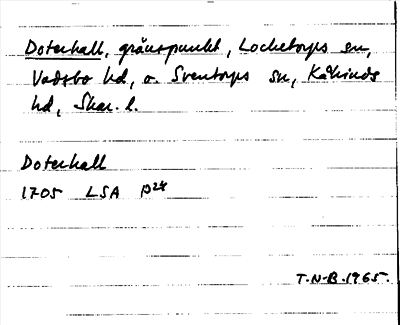 Doterhall, gränspunkt, Locketorps sn,
Vadsbo hd, o. Sventorps sn, Kåkinds
hd, Skar. l.
Doterhall
1705 LSA P24
T.N-B. 1965.